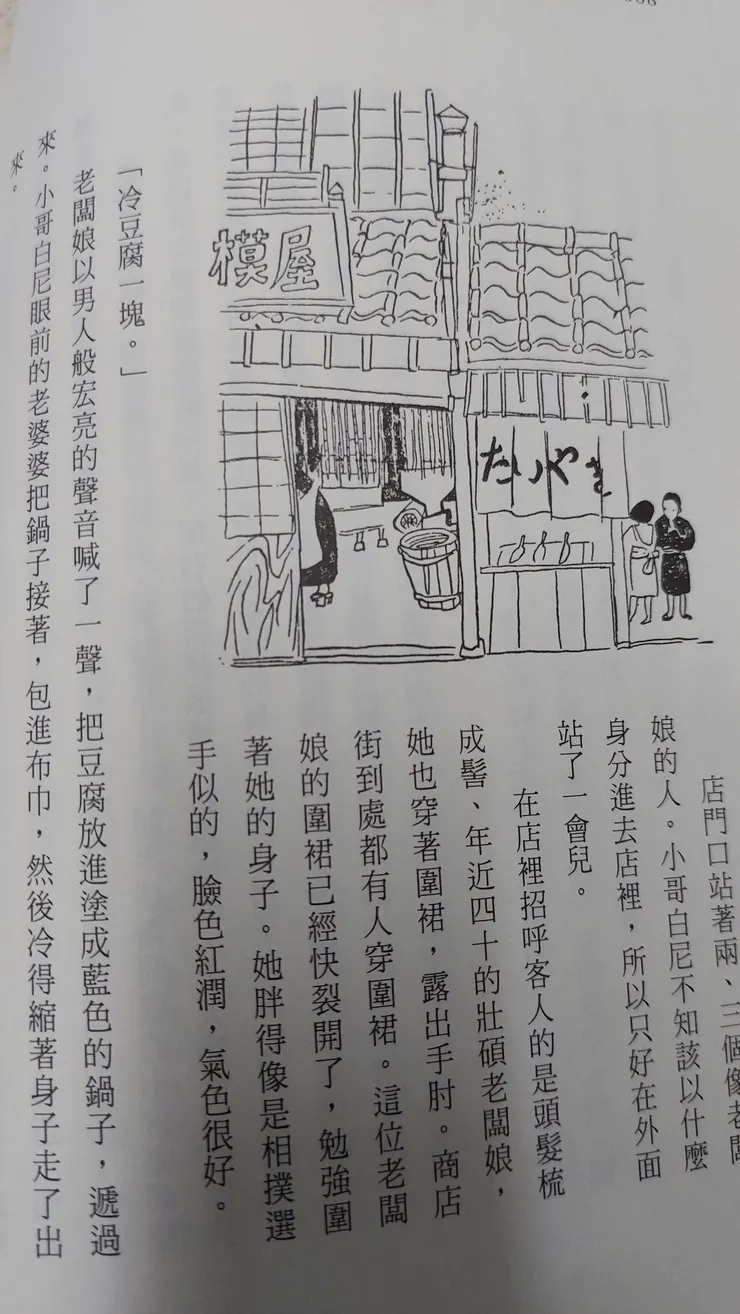 模屋
たいやき
店門口站著兩、三個像老闆
娘的人。小哥白尼不知該以什麼
身分進去店裡，所以只好在外面
站了一會兒。
在店裡招呼客人的是頭髮梳
成髻、年近四十的壯碩老闆娘，
她也穿著圍裙，露出手肘。商店
街到處都有人穿圍裙。這位老闆
娘的圍裙已經快裂開了，勉強圍
著她的身子。她胖得像是相撲選
手似的，臉色紅潤，氣色很好。
「冷豆腐一塊。」
老闆娘以男人般宏亮的聲音喊了一聲，把豆腐放進塗成藍色的鍋子，遞過
來。小哥白尼眼前的老婆婆把鍋子接著，包進布巾，然後冷得縮著身子走了出
來。